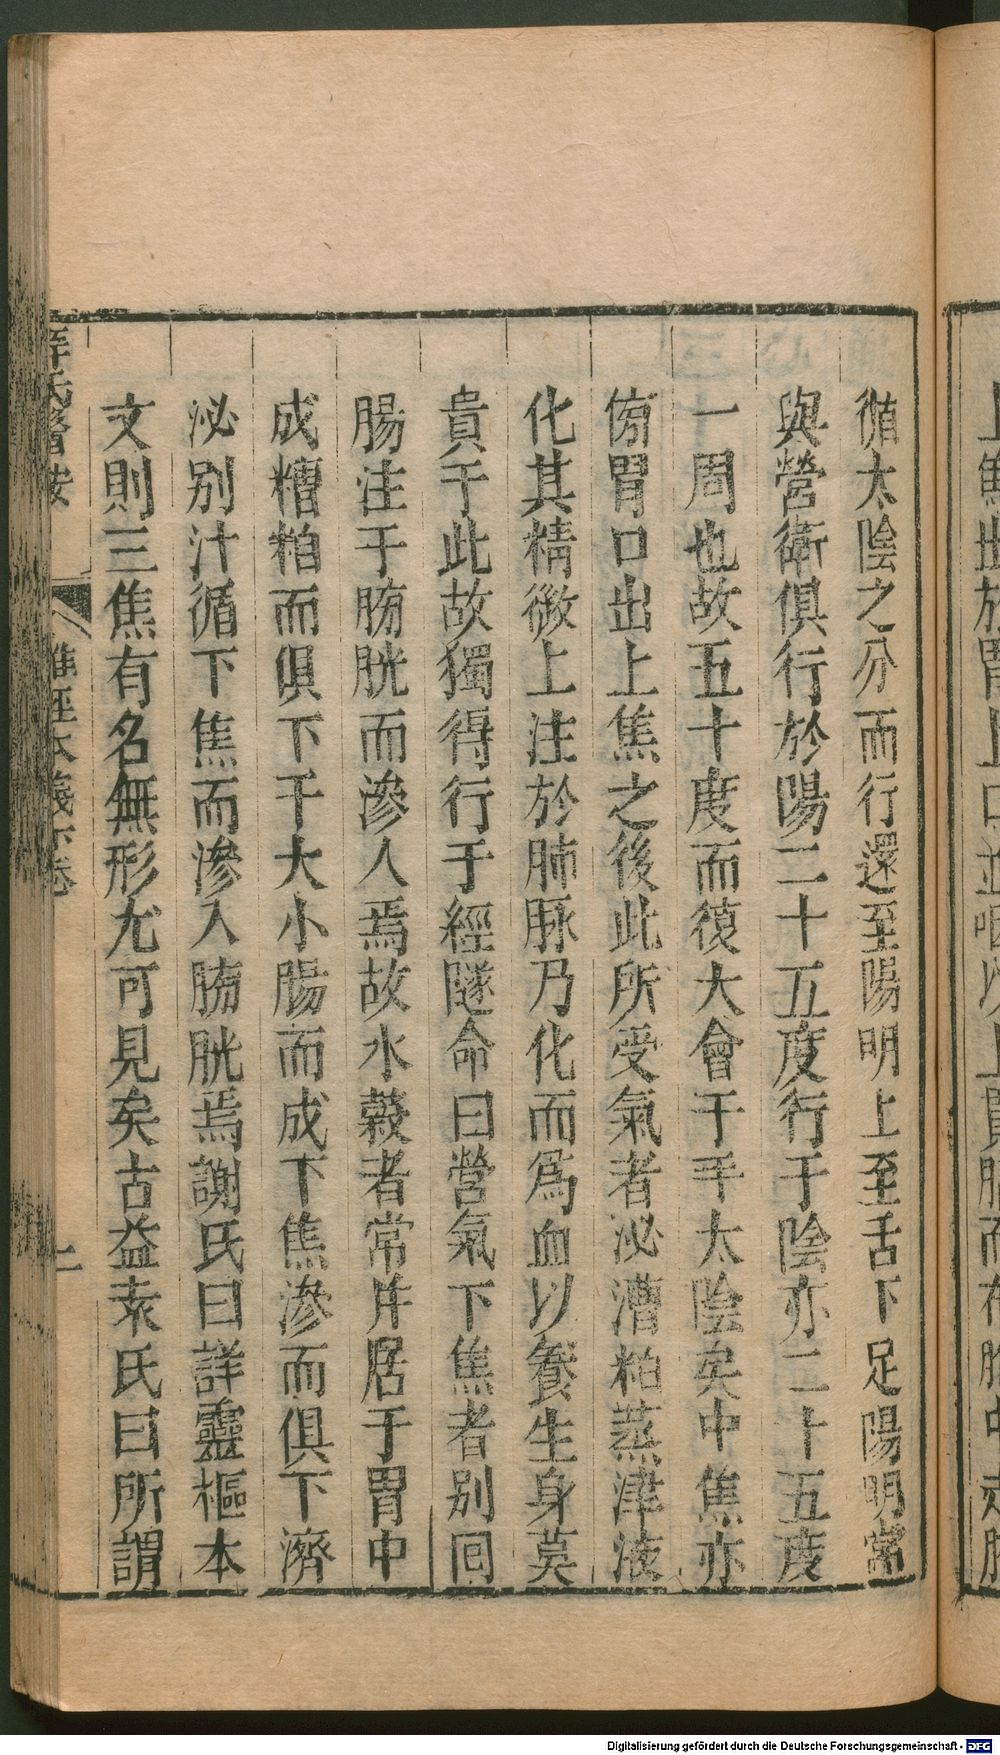 循太陰之分而行還至陽明上至舌下足陽明常
與營衛俱行於陽二十五度行于陰亦二十五度
一周也故五十度而復大會于手太陰矣中焦亦
傍胃口出上焦之後此所受氣者泌漕粕蒸津液
化其精微上注於肺脉乃化而爲血以養生身莫
貴于此故獨得行于經隧命曰營氣下焦者別囘
腸注于膀胱而滲入焉故水榖者常并居于胃中
成糟粕而俱下于大小腸而成下焦滲而俱下濟
泌別汁循下焦而滲入膀胱焉謝氏曰詳靈樞本
文則三焦有名無形尤可見矣古益袁氏曰所謂
薛氏醫按
難經本義下卷
Digitalisierung gefördert durch die Deutsche Forschungsgemeinschaft - DFG